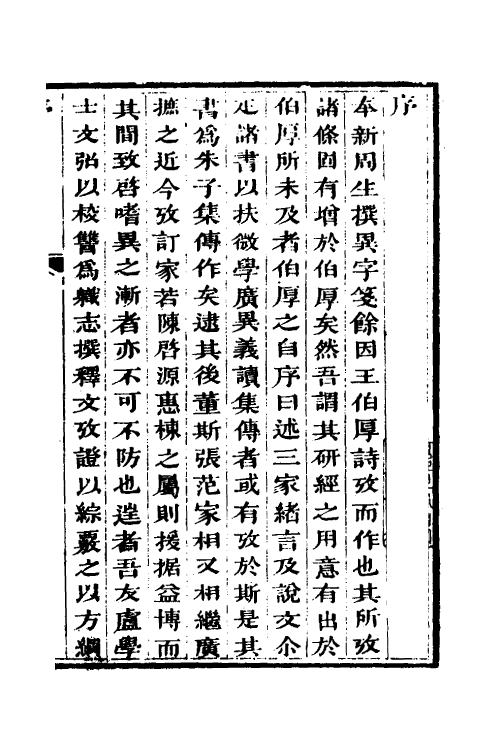 序
奉新周生撰異字箋餘因王伯厚詩攷而作也其所攷
諸條固有增於伯厚矣然吾謂其研經之用意有出於
伯厚所未及者伯厚之自序曰述三家緒言及說文尒
疋諸書以扶微學廣異義讀集傳者或有攷於斯是其
書為朱子集傳作矣逮其後董斯張范家相又相繼廣
摭之近今攷訂家若陳啓源惠棟之屬則援据益博而
其間致啓嗜異之漸者亦不可不防也逞者吾友盧學
士文弨以校讐為職志撰釋文攷證以綜覈之以方綱